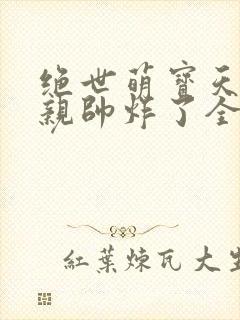 绝世萌寶天
親帥炸了全
紅葉煉瓦大